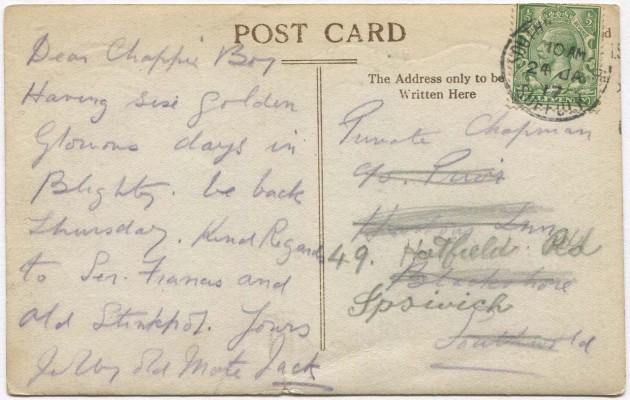 POST CARD
Dear Chappie Boy
Having six golden
Glorious days in
Blighty. be back
Thursday. Kind Regards
to Ser. Francis and
old Stinkpot. Yours
Jolly old Mate Jack
The Address only to be
Written Here
Private Chapman
c/o.
Inn
49. Hatfield Rd
Blackshore
Ipswich
Southwold
10 AM
24 JA
17
SUFFOLK